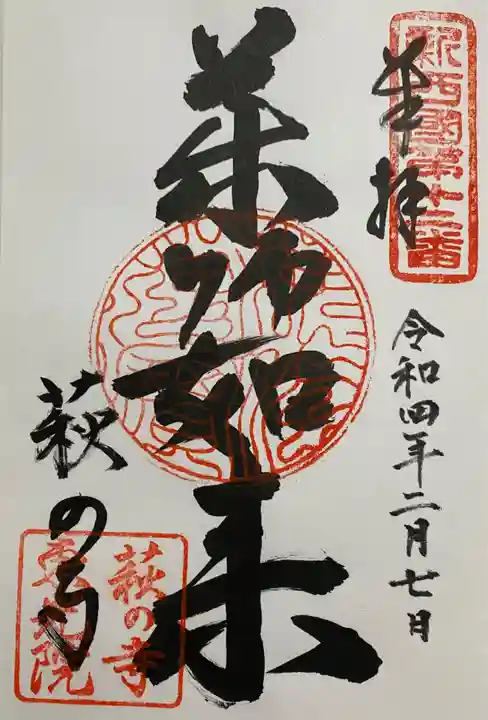 新西國第十二番
奉拝
令和四年二月七日
薬師如来
萩の寺
萩の寺
東光院